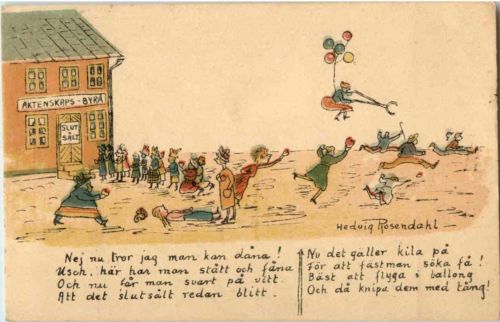 ÄKTENSKAPS-BYRÅ
SLUT
SÅLT
Hedvig Rosendahl
Nej nu tror jag man kan dåna!
Usch, här har man stått och fåna
Och nu får man svart på vitt
Att det slutsålt redan blitt.
Nu det gäller kila på
För att fästman söka få!
Bäst att flyga i ballong
Och då knipa dem med tång!